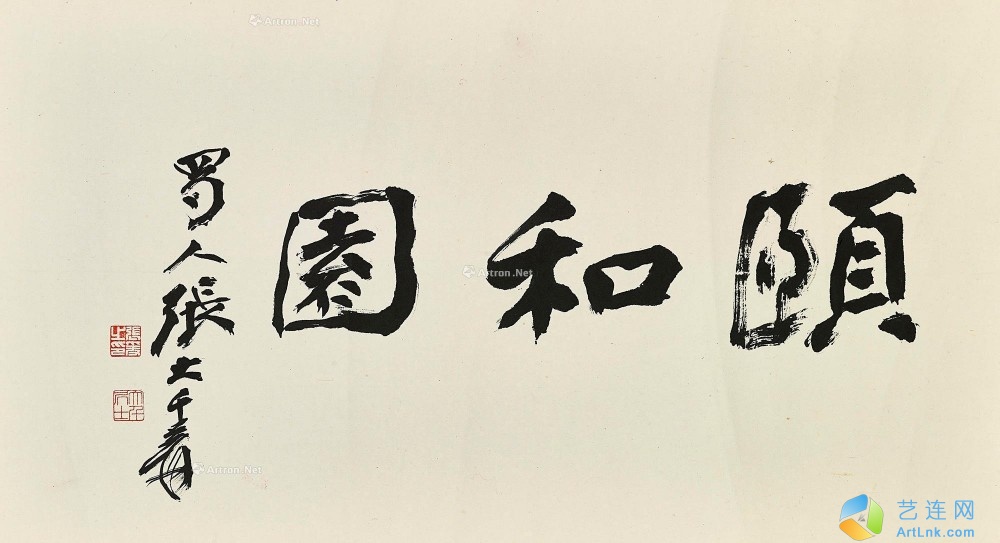 頤和園
蜀人張大千爰
張爰之印
大千居士
Artron.Net
Artron.Net
Artron.Net
艺连网
ArtLnk.com